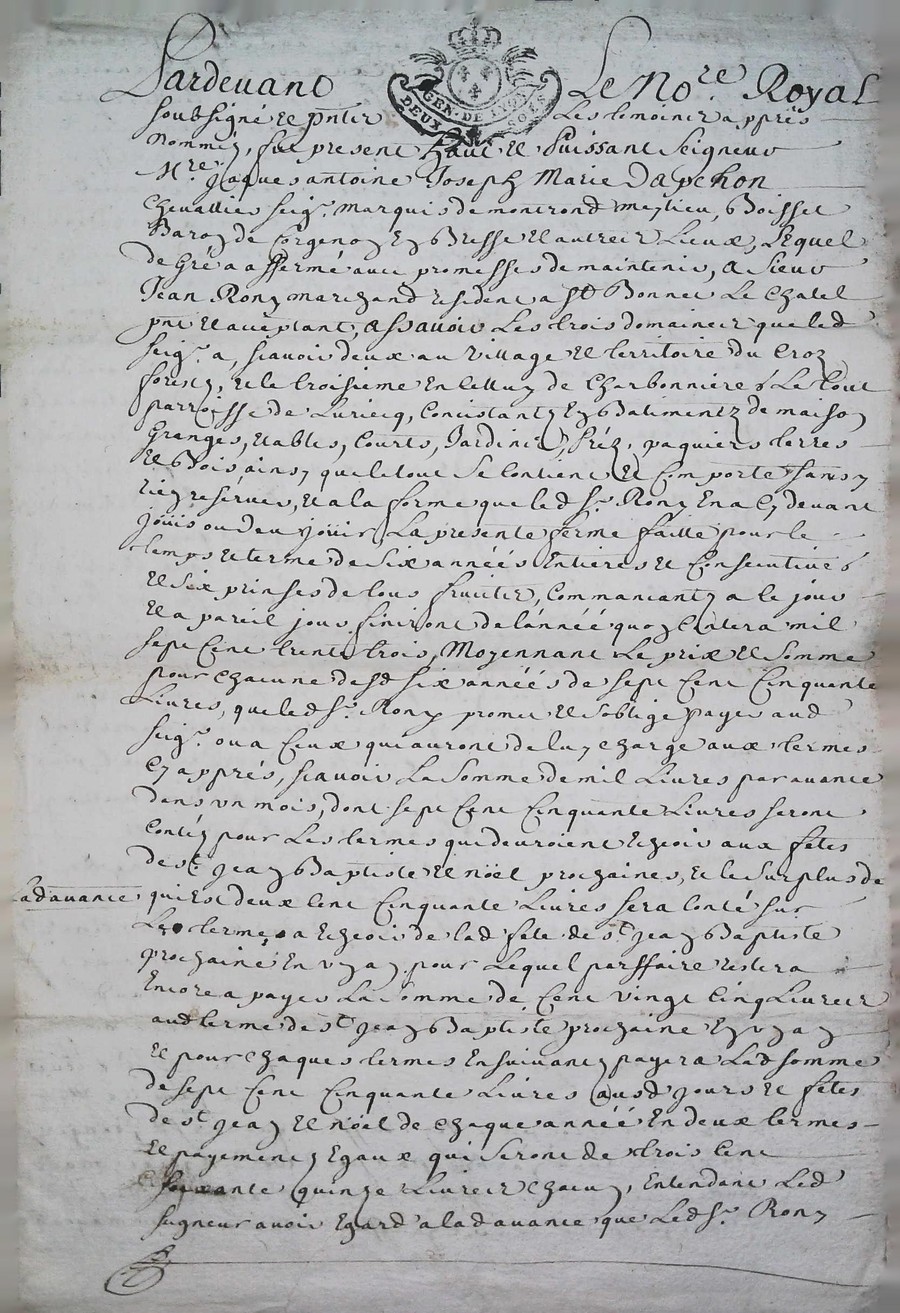 Pardevant Le No.re Royal
GEN. DE LYON
DEUX SOLS
soubsigné et pnter Les temoincts apprés
Nommés, fut present haut et Puissant Seigneur
M.re Jaques antoine Joseph Marie Dapchon
Chevallier seig.r marquis de montrond meylieu, Boisset
Baron de Corgenon En Bresse et autres Lieux, Lequel
de Gré a affermé avec promesses de maintenir, a Sieur
Jean Rony marchand resident a St Bonnet Le Chatel
pnt et acceptant, assavoir Les trois domaines que led
seig.r a, scavoir deux au village et territoire du Croz
forest, et le troisieme En celluy de Charbonnière Le tout
parroisse de Luriecq, Concistants En Batiments de maison
Granges, Etables, Courts, Jardins, Préz, paquiers terres
et Bois ainsy que le tout se Contient et Comporte sans
rien reserver, et a la forme que led s.r Rony En a Cy devant
joüit ou deu joüir La presente ferme faitte pour le
temps et terme de Six années Entieres et Consecutives
et Six prinses de tous fruicts, Commancants a ce jour
et a pareil jour finiront de l'année quon Contera mil
sept Cent trente trois, Moyennant Le prix et Somme
pour Chacune desd six années de sept Cent Cinquante
Livres, que led s.r Rony promet et s'oblige payer aud
seig.r ou a Ceux qui auront de luy charge aux termes
Cy apprés, scavoir La Somme de mil Livres par avance
dans un mois, dont sept Cent Cinquante Livres seront
Contés pour Les termes qui devroient Echeoir aux fêtes
de st Jean Baptiste et noël prochaines, et le Surplus de
ladavance qui Est deux Cent Cinquante Livres sera Conté sur
Le terme a Echeoir de lad fête de st Jean Baptiste
prochaine En un an pour Lequel parffaire restera
Encore a payer La Somme de Cent vingt Cinq Livres
aud terme de st Jean Baptiste prochaine En un an
et pour chaques termes Ensuivants payera Lad somme
de sept Cent Cinquante Livres ausd jours et fêtes
de st Jean et noël de chaque année En deux termes
et payements Egaux qui seront de trois Cent
soixante quinze Livres chacun, Entendant Led
seigneur avoir Egard a ladavance que Led s.r Rony